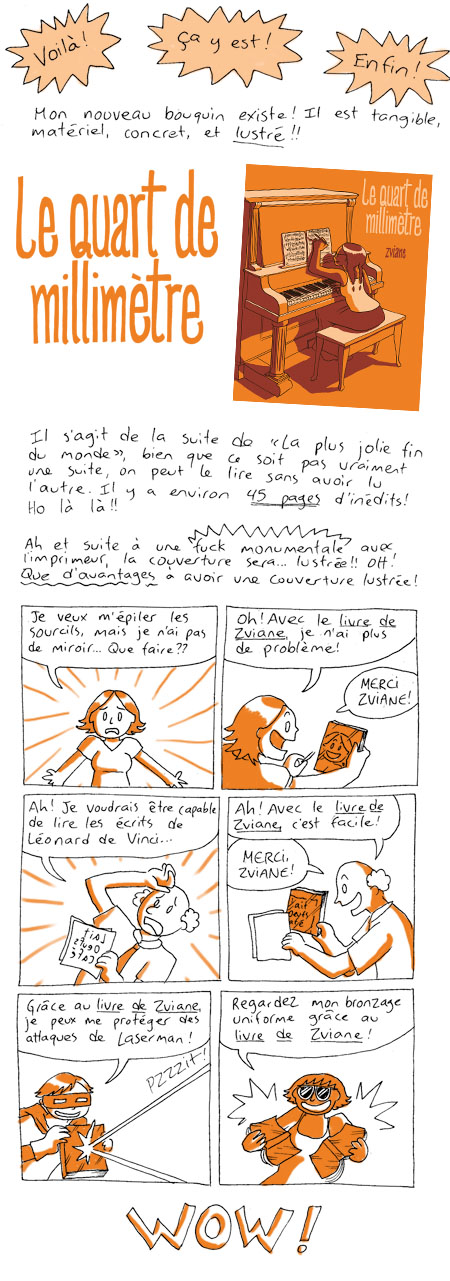 Voilà!
Ça y est!
Enfin!
Mon nouveau bouquin existe! Il est tangible,
matériel, concret, et lustré!!
Le quart de
millimètre
Le quart de
millimètre
zviane
Il s'agit de la suite de «La plus jolie fin
du monde», bien que ce soit pas vraiment
une suite, on peut le lire sans avoir lu
l'autre. Il y a environ 45 pages d'inédits!
Ho là là!!
Ah et suite à une fuck monumentale avec
l'imprimeur, la couverture sera... lustrée!! OH!
Que d'avantages à avoir une couverture lustrée!
Je veux m'épiler les
sourcils, mais je n'ai pas
de miroir... Que faire??
Oh! Avec le livre de
Zviane, je n'ai plus
de problème!
MERCI
ZVIANE!
Ah! Je voudrais être capable
de lire les écrits de
Léonard de Vinci...
LAIT
OEUFS
CAFÉ
Ah! Avec le livre de
Zviane, c'est facile!
MERCI,
ZVIANE!
Grâce au livre de Zviane,
je peux me protéger des
attaques de Laserman!
PZZZIT!
Regardez mon bronzage
uniforme grâce au
livre de Zviane!
WOW!